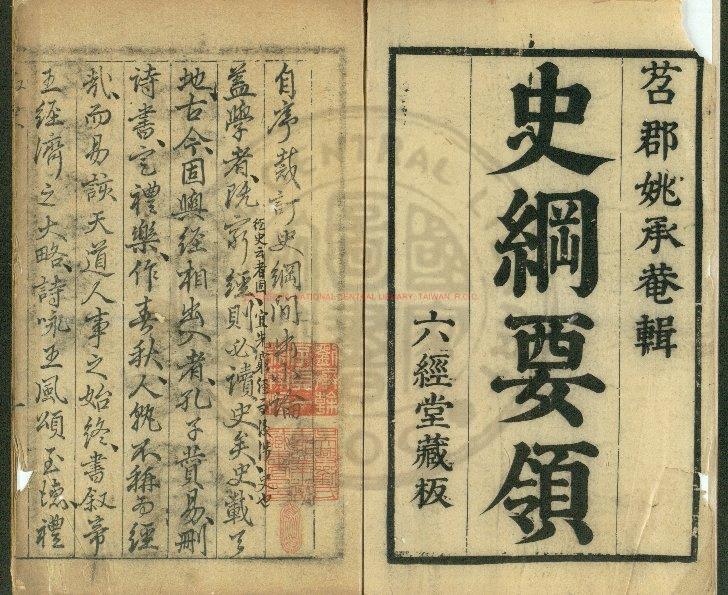 苕郡姚承菴輯
史綱要領
六經堂藏板
自序裁訂史綱開出小論
蓋學者旣窮經則必讀史矣史載天
經史云者固宜先窮經而後讀史也
地古今固與經相出入者孔子贊易刪
詩書定禮樂作春秋人孰不稱爲經
哉而易談天道人事之始終書叙帝
王經濟之大略詩咏王風頌至德禮
NATIONAL CENTRAL LIBRARY, TAIWAN, R.O.C.